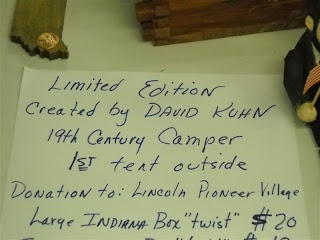 Limited Edition
Created by DAVID KUHN
19th Century Camper
1ST tent outside
DONATION to: LINCOLN PIONEER Village
LARGE INDIANA BOX "twist" $20